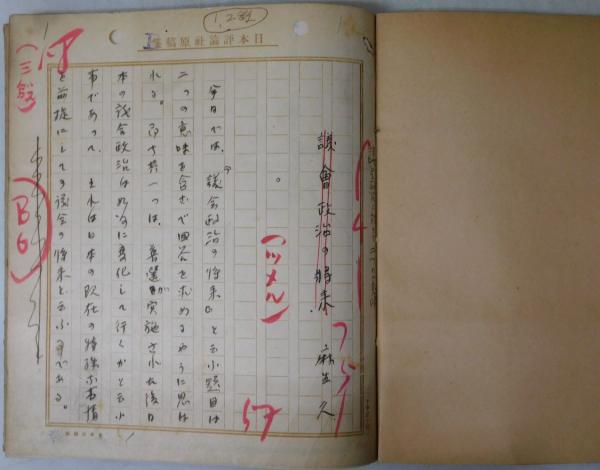 議會政治の將来
麻生久
(ツメル)
57
今日では、『議会政治の将来』と云小題目は
二つの意味を含むで回答を求めるやうに思は
れる。即ち其一つは、普選が実施された後日
本の議会政治は如何に変化して行くかと云小
事であつて、それは日本の現在の特殊な事情
を前提にしての議会の将来と云ふ事である。
日本評論社原稿用
(三回)
(B6)